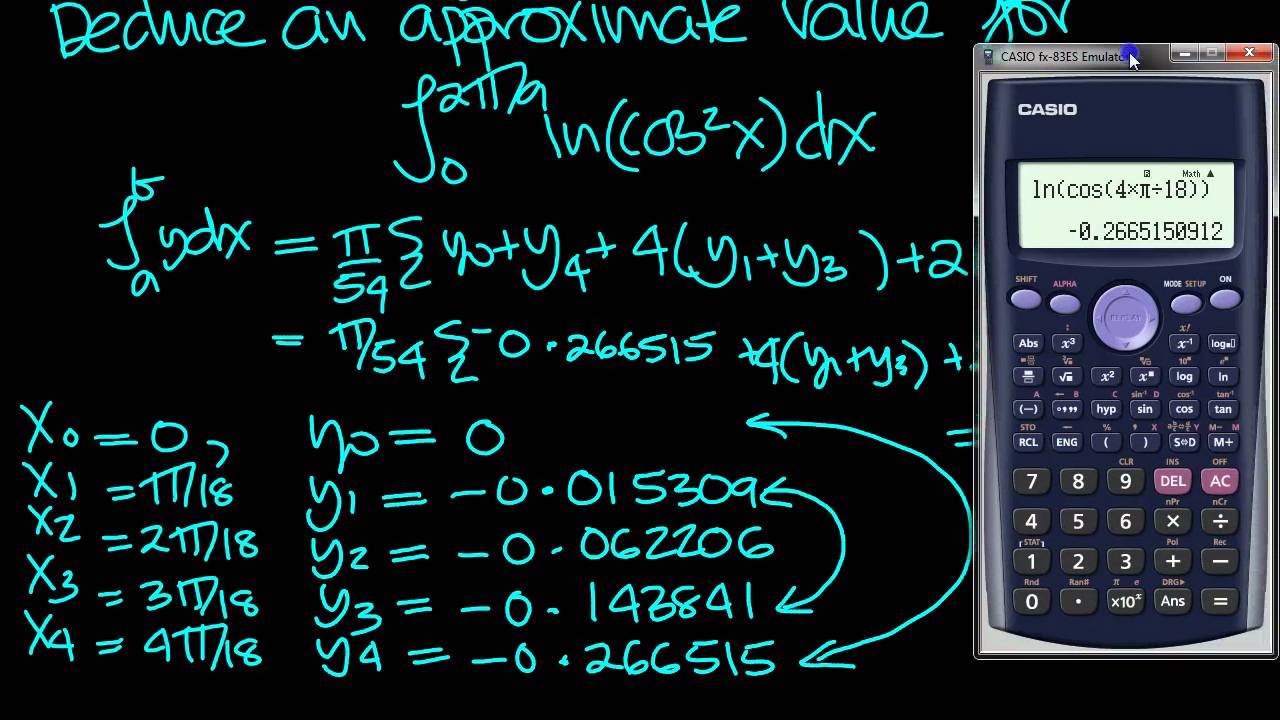 Deduce an approximate value for
∫₀^(2π/9) ln(cos²x)dx
∫ₐᵇ ydx = π/54 { y₀+y₄+4(y₁+y₃)+2
= π/54 { -0.266515 +4(y₁+y₃) +
x₀ = 0, y₀ = 0 =
x₁ = π/18 y₁ = -0.015309
x₂ = 2π/18 y₂ = -0.062206
x₃ = 3π/18 y₃ = -0.143841
x₄ = 4π/18 y₄ = -0.266515
CASIO fx-83ES Emulato
CASIO
Math ▲
ln(cos(4×π÷18))
-0.2665150912
SHIFT ALPHA MODE SETUP ON
REPLAY
x!
Abs x³ x⁻¹ log
10ˣ eˣ
√ x² x log ln
A B C sin⁻¹ D cos⁻¹ tan⁻¹
(−) °'" hyp sin cos tan
STO ← % , X Y M− M
RCL ENG ( ) S⇔D M+
CLR INS OFF
7 8 9 DEL AC
nPr nCr
4 5 6 × ÷
STAT Pol Rec
1 2 3 + −
Rnd Ran# π e DRG▶
0 . ×10ˣ Ans =